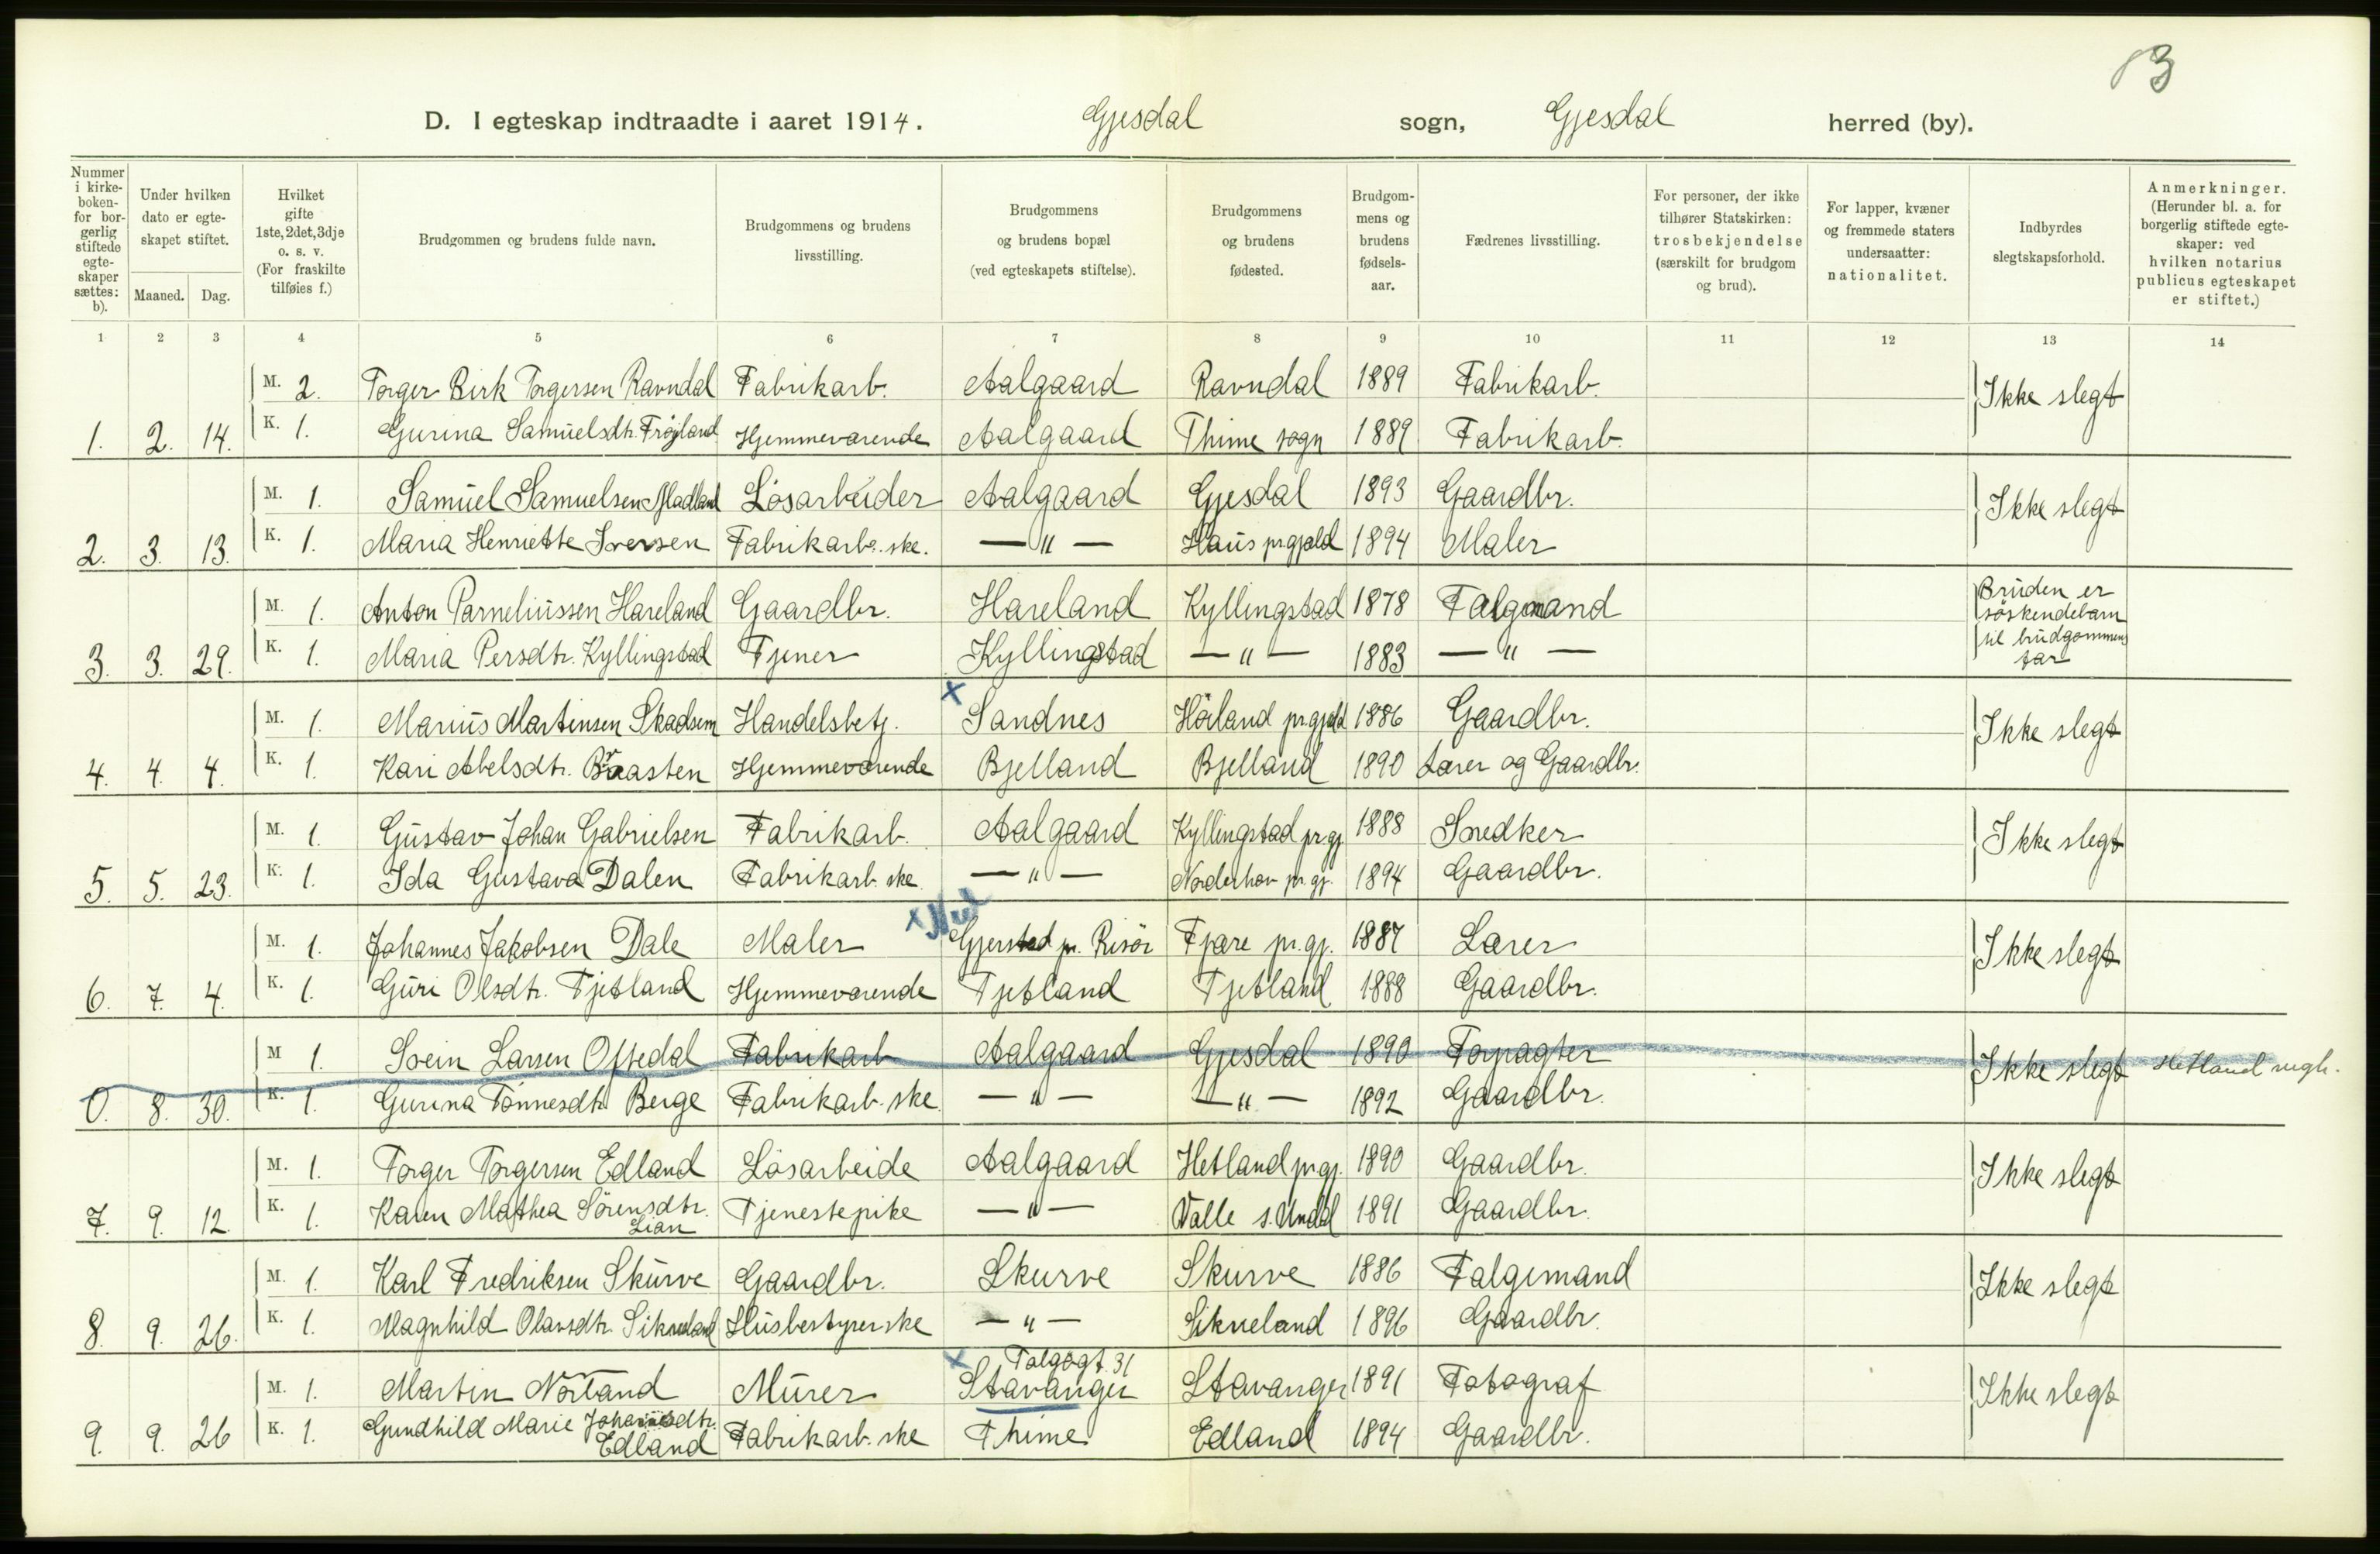 13
D. I egteskap indtraadte i aaret 1914. Gjesdal sogn, Gjesdal herred (by).
Nummer i kirkeboken- for borgerlig stiftede egteskaper sættes: b).
Under hvilken dato er egteskapet stiftet.
Maaned. Dag.
Hvilket gifte 1ste, 2det, 3dje o. s. v. (For fraskilte tilføies f.)
Brudgommen og brudens fulde navn.
Brudgommens og brudens livsstilling.
Brudgommens og brudens bopæl (ved egteskapets stiftelse).
Brudgommens og brudens fødested.
Brudgommens og brudens fødselsaar.
Fædrenes livsstilling.
For personer, der ikke tilhører Statskirken: trosbekjendelse (særskilt for brudgom og brud).
For lapper, kvæner og fremmede staters undersaatter: nationalitet.
Indbyrdes slegtskapsforhold.
Anmerkninger. (Herunder bl. a. for borgerlig stiftede egteskaper: ved hvilken notarius publicus egteskapet er stiftet.)
1 2 3 4 5 6 7 8 9 10 11 12 13 14
M. 2. Torger Birk Torgersen Ravndal Fabrikarb. Aalgaard Ravndal 1889 Fabrikarb. Ikke slegt
1. 2. 14. K. 1. Gurina Samuelsdtr. Fröjland Hjemmeværende Aalgaard Thime sogn 1889 Fabrikarb.
M. 1. Samuel Samuelsen Madland Lösarbeider Aalgaard Gjesdal 1893 Gaardbr. Ikke slegt
2. 3. 13. K. 1. Maria Henriette Iversen Fabrikarb.ske. — " — Haus prgjeld 1894 Maler
M. 1. Anton Parneliussen Hareland Gaardbr. Hareland Kyllingstad 1878 Falgmand Bruden er söskendebarn til brudgommens far
3. 3. 29. K. 1. Maria Persdtr. Kyllingstad Tjener Kyllingstad — " — 1883 — " —
M. 1. Marius Martinsen Skadsem Handelsbetj. x Sandnes Höiland pr.gjeld 1886 Gaardbr. Ikke slegt
4. 4. 4. K. 1. Kari Abelsdtr. Braasten Hjemmeværende Bjelland Bjelland 1890 Lærer og Gaardbr.
M. 1. Gustav Johan Gabrielsen Fabrikarb. Aalgaard Kyllingstad pr.gj. 1888 Snedker Ikke slegt
5. 5. 23. K. 1. Ida Gustava Dalen Fabrikarb.ske — " — Norderhov pr.gj. 1894 Gaardbr.
M. 1. Johannes Jakobsen Dale Maler x Gjerstad pr. Risör Fjære pr.gj. 1887 Lærer Ikke slegt
6. 7. 4. K. 1. Guri Olsdtr. Tjetland Hjemmeværende Tjetland Tjetland 1888 Gaardbr.
M 1. Svein Larsen Oftedal Fabrikarb Aalgaard Gjesdal 1890 Forpagter Ikke slegt Hetland
0. 8. 30. K. 1. Gurina Tönnesdtr. Berge Fabrikarb.ske. — " — — " — 1892 Gaardbr.
M. 1. Torger Torgersen Edland Lösarbeide Aalgaard Hetland pr.gj. 1890 Gaardbr. Ikke slegt
7. 9. 12 K. 1. Karen Mathea Sörensdtr. Lian Tjenestepike — " — Valle s. Undal 1891 Gaardbr.
M. 1. Karl Fredriksen Skurve Gaardbr. Skurve Skurve 1886 Falgemand Ikke slegt
8. 9. 26. K. 1. Magnhild Olavsdtr. Sikveland Husbestyrerske — " — Sikveland 1896 Gaardbr.
M. 1. Martin Norland Murer x Talgogt. 31 Stavanger Stavanger 1891 Fotograf Ikke slegt
9. 9. 26 K. 1. Gundhild Marie Johannesdtr. Edland Fabrikarb.ske Thime Edland 1894 Gaardbr.